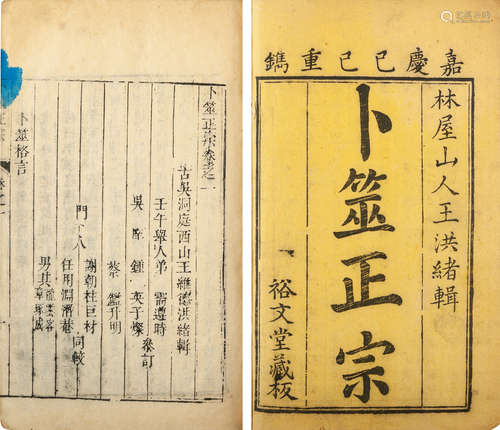 嘉慶己巳重鐫
林屋山人王洪緒輯
卜筮正宗
裕文堂藏板
卜筮正宗卷之一
古吳洞庭西山王維德洪緒輯
壬午舉人弟 霱遵時
吳 庠 鍾 英子燦 叅訂
蔡 鑑升明
門人
謝朝柱巨材
任用淵濟菴
同較
卜筮格言